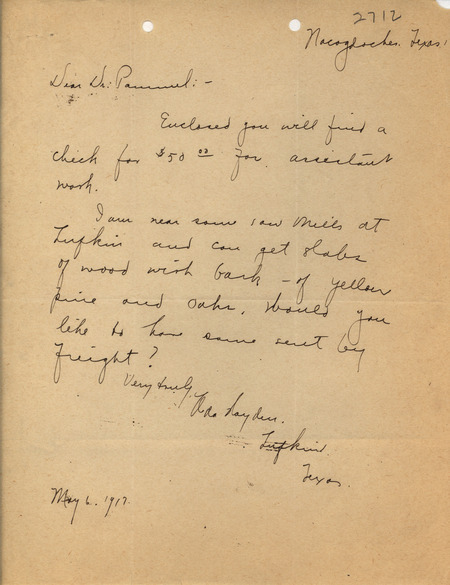 2712
Nacogdoches, Texas,
Dear Dr. Pammel:-
Enclosed you will find a
check for $50 00 for assistant
work.
I am near some saw mills at
Lufkin and can get slabs
of wood with bark - of yellow
pine and oaks. Would you
like to have some sent by
freight?
Very truly,
Ada Hayden.
Lufkin
Texas.
May 6. 1917.